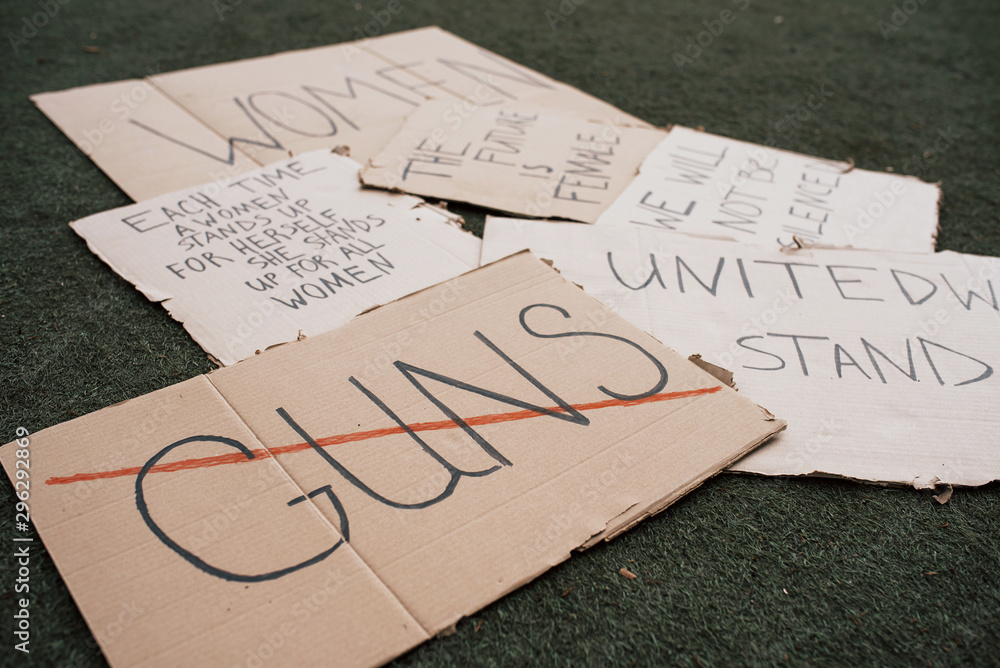 WOMEN
THE
FUTURE
IS
FEMALE
WE WILL
NOT BE
SILENCED
EACH TIME
A WOMEN
STANDS UP
FOR HERSELF
SHE STANDS
UP FOR ALL
WOMEN
UNITED W
STAND
GUNS
Adobe Stock | #296292869